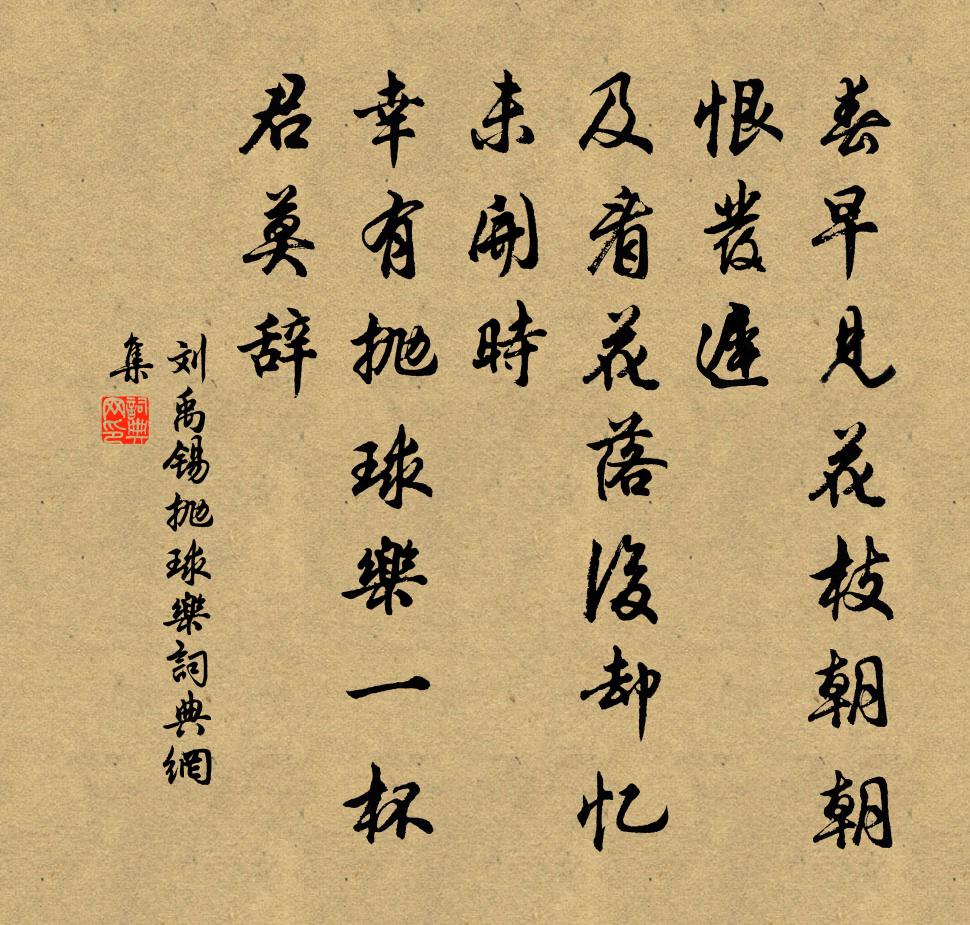 春早見花枝朝朝
恨發遲
及看花落後却忆
未開時
幸有抛球樂一杯
君莫辞
刘禹锡抛球樂詞典網
集
詞典网印